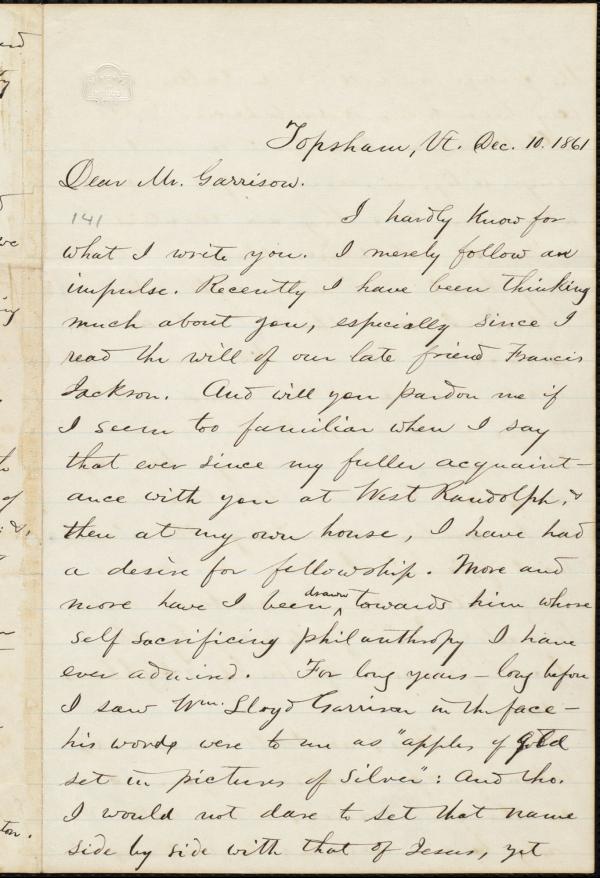 Topsham, Vt. Dec. 10. 1861
Dear Mr. Garrison.
141
I hardly know for
what I write you. I merely follow an
impulse. Recently I have been thinking
much about you, especially since I
read the will of our late friend Francis
Jackson. And will you pardon me if
I seem too familiar when I say
that ever since my fuller acquaint-
ance with you at West Randolph, &
then at my own house, I have had
a desire for fellowship. More and
more have I been drawn towards him whose
self sacrificing philanthropy I have
ever admired. For long years - long before
I saw Wm. Lloyd Garrison in the face -
his words were to me as "apples of gold
set in pictures of silver": And tho.
I would not dare to set that name
side by side with that of Jesus, yet